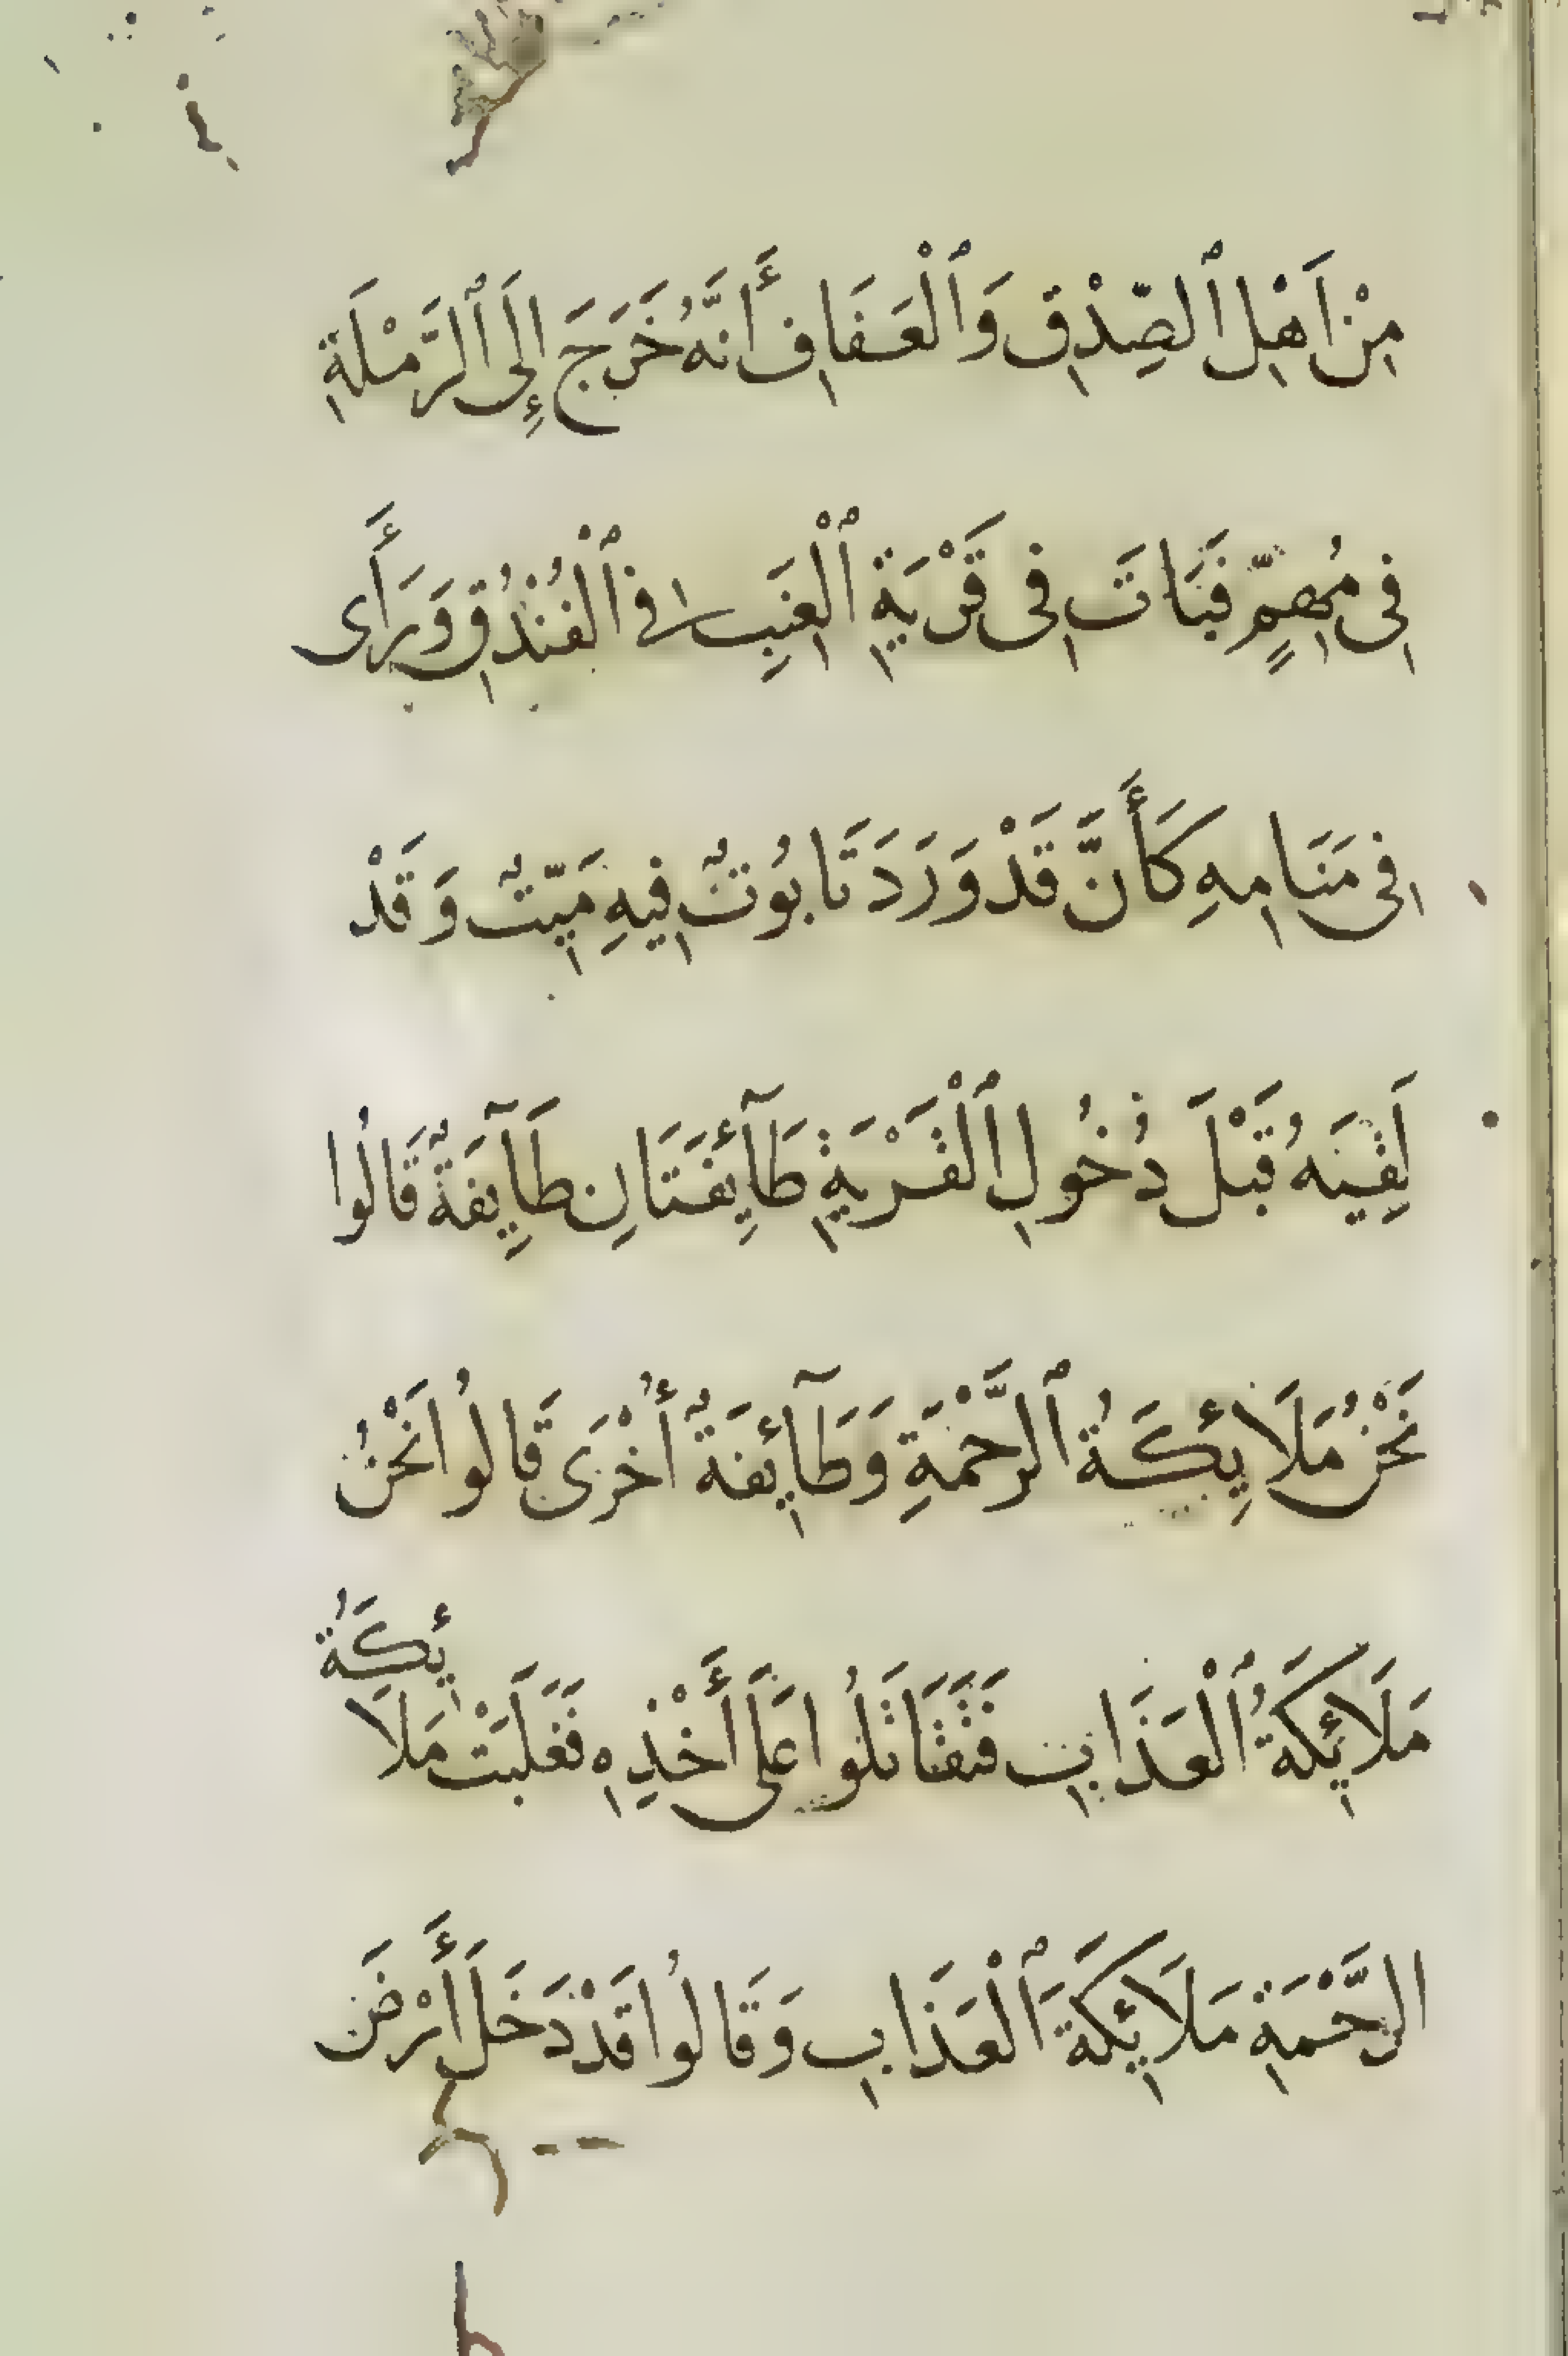 مِنْ اَهْلِ ٱلصِّدْقِ وَٱلْعَفَافِ أَنَّهُ خَرَجَ إِلَى ٱلرَّمْلَةِ
فِى مُهِمٍّ فَبَاتَ فِى قَرْيَةِ ٱلْعِنَبِ فِى ٱلْفُنْدُقِ وَرَأَى
فِى مَنَامِهِ كَأَنَّ قَدْ وَرَدَ تَابُوتٌ فِيهِ مَيِّتٌ وَقَدْ
لَقِيَهُ قَبْلَ دُخُولِ ٱلْقَرْيَةِ طَآئِفَتَانِ طَآئِفَةٌ قَالُوا
نَحْنُ مَلَائِكَةُ ٱلرَّحْمَةِ وَطَآئِفَةٌ أُخْرَى قَالُوا نَحْنُ
مَلَائِكَةُ ٱلْعَذَابِ فَتَقَاتَلُوا عَلَى أَخْذِهِ فَغَلَبَتْ مَلَائِكَةُ
الرَّحْمَةِ مَلَائِكَةَ ٱلْعَذَابِ وَقَالُوا قَدْ دَخَلَ أَرْضَ